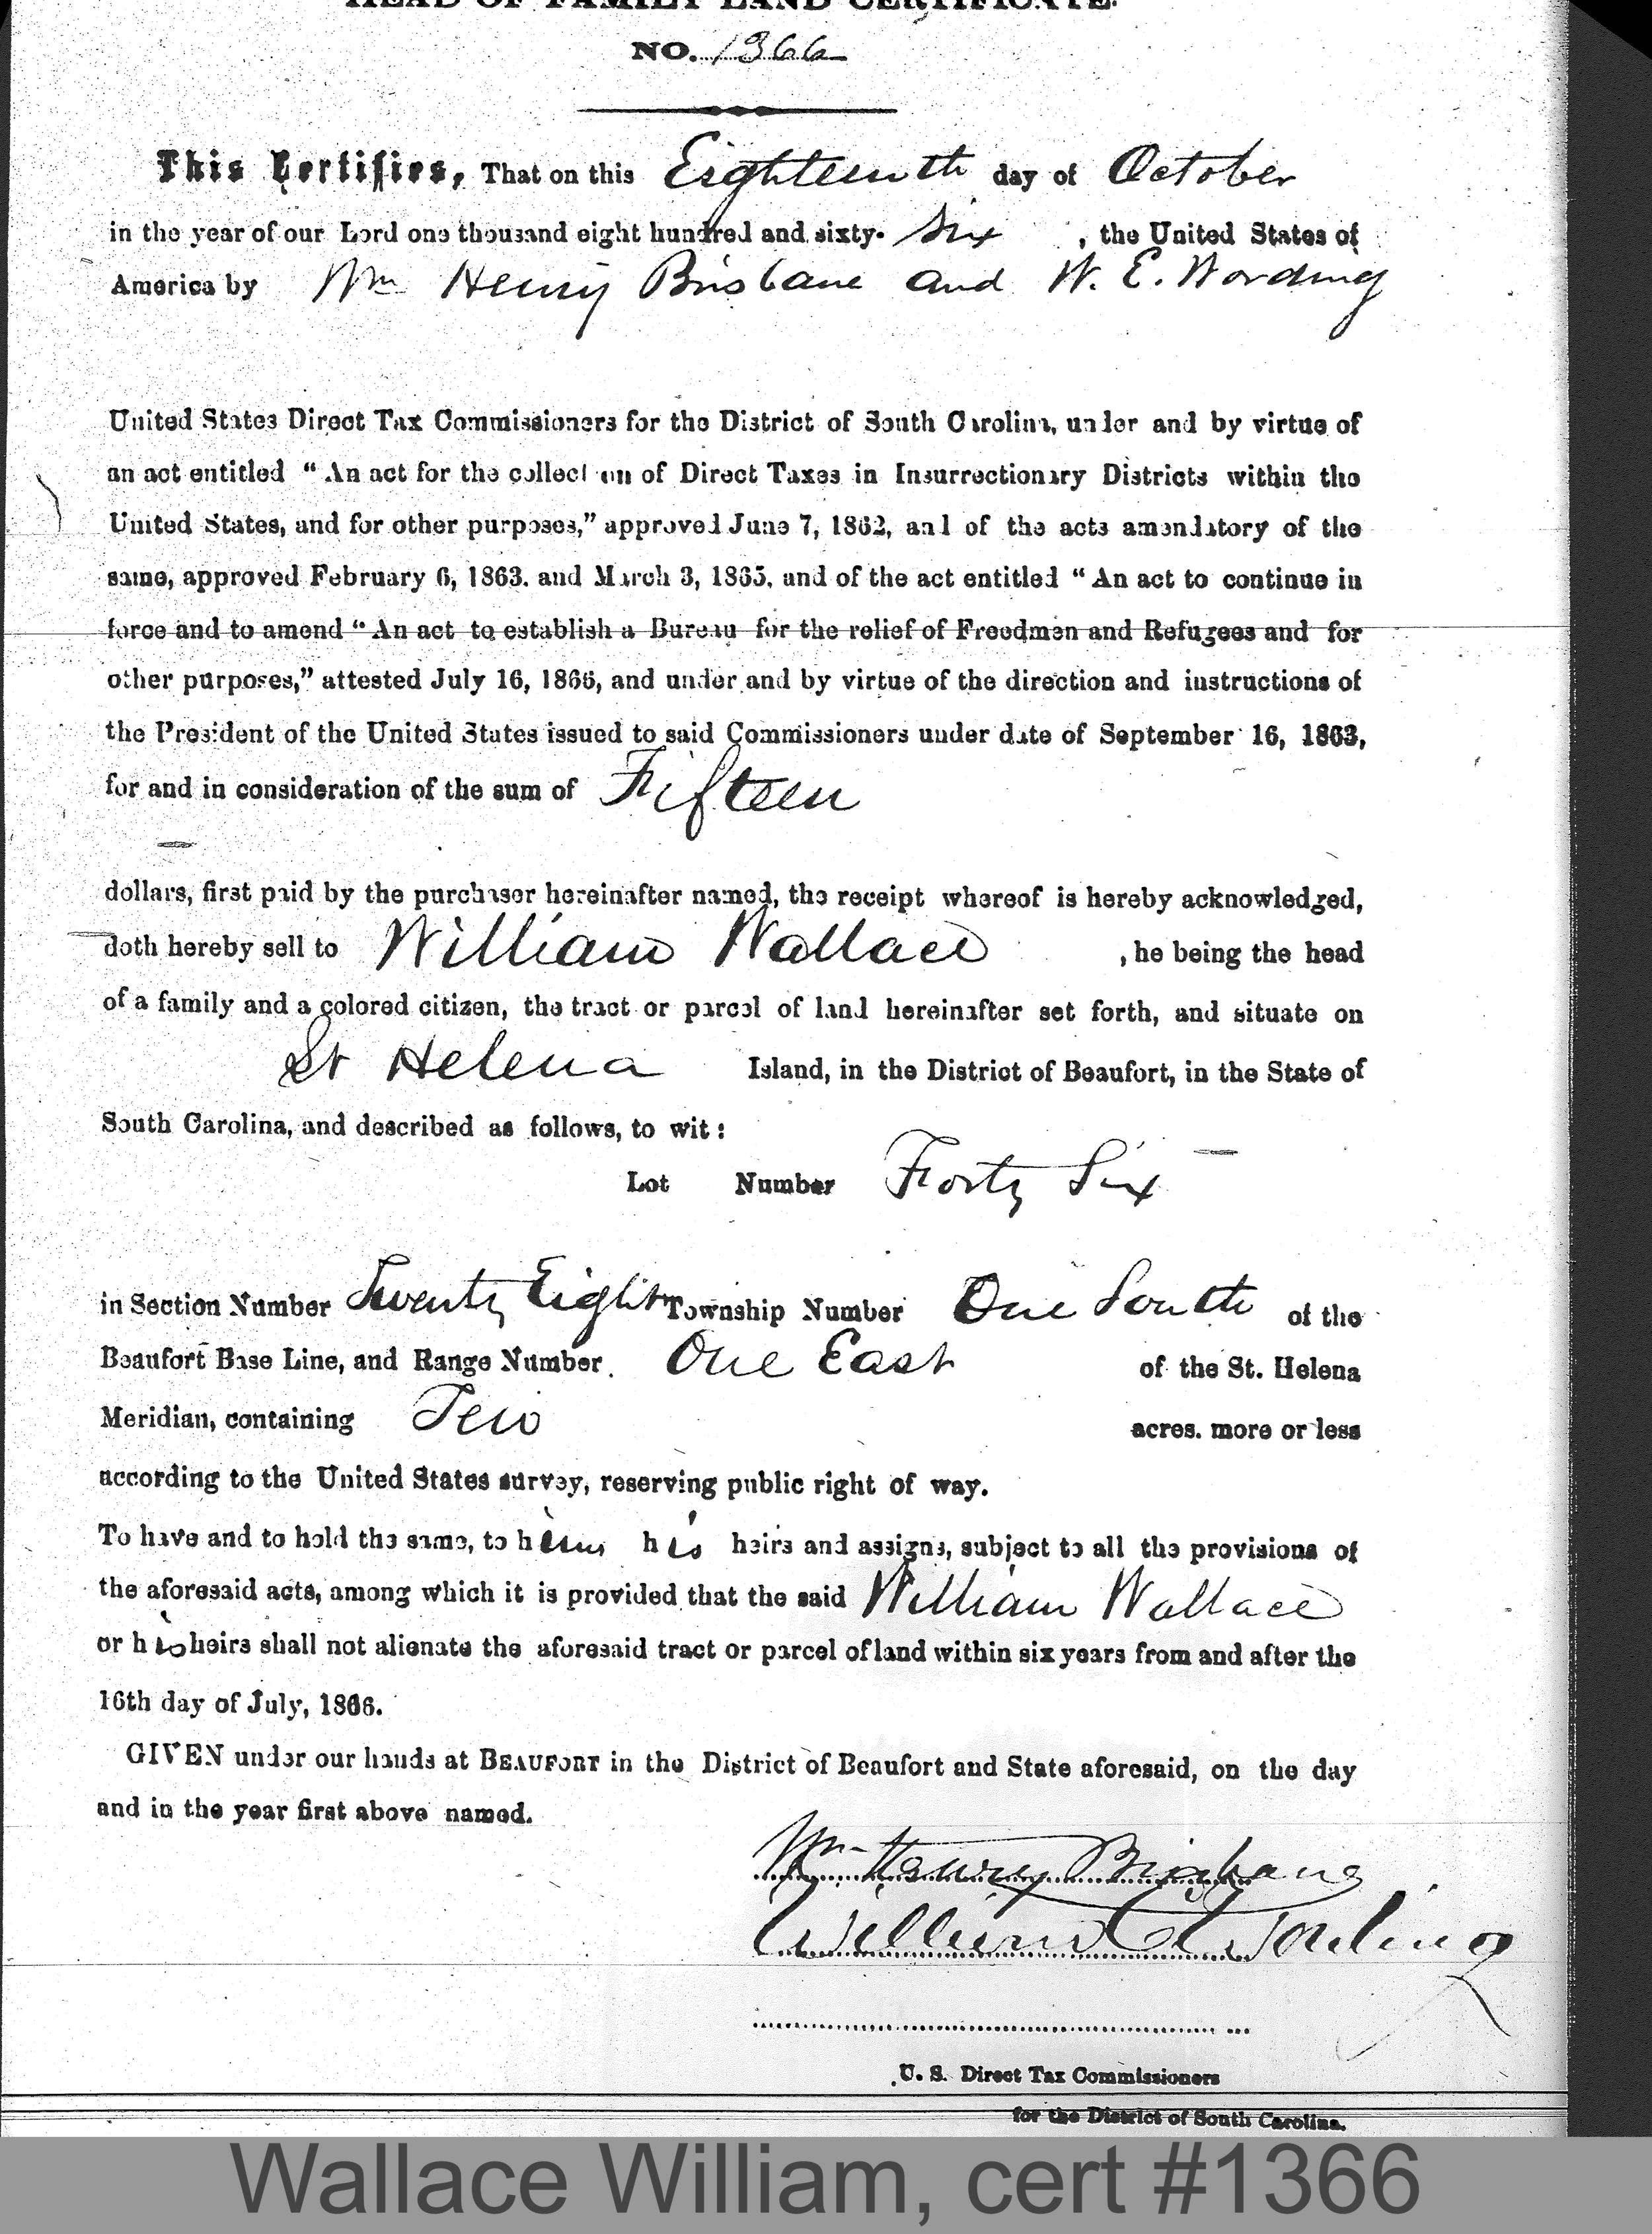 HEAD OF FAMILY LAND CERTIFICATE.
NO. 1366
This Certifies, That on this Eighteenth day of October
in the year of our Lord one thousand eight hundred and sixty- six , the United States of
America by Wm Henry Brisbane and W. E. Wording
United States Direct Tax Commissioners for the District of South Carolina, under and by virtue of
an act entitled “An act for the collection of Direct Taxes in Insurrectionary Districts within the
United States, and for other purposes,” approved June 7, 1862, and of the acts amendatory of the
same, approved February 6, 1863. and March 3, 1865, and of the act entitled “An act to continue in
force and to amend “An act to establish a Bureau for the relief of Freedmen and Refugees and for
other purposes,” attested July 16, 1866, and under and by virtue of the direction and instructions of
the President of the United States issued to said Commissioners under date of September 16, 1863,
for and in consideration of the sum of Fifteen
dollars, first paid by the purchaser hereinafter named, the receipt whereof is hereby acknowledged,
doth hereby sell to William Wallace , he being the head
of a family and a colored citizen, the tract or parcel of land hereinafter set forth, and situate on
St Helena Island, in the District of Beaufort, in the State of
South Carolina, and described as follows, to wit:
Lot Number Forty Six
in Section Number Twenty Eight Township Number One South of the
Beaufort Base Line, and Range Number. One East of the St. Helena
Meridian, containing Ten acres. more or less
according to the United States survey, reserving public right of way.
To have and to hold the same, to him his heirs and assigns, subject to all the provisions of
the aforesaid acts, among which it is provided that the said William Wallace
or his heirs shall not alienate the aforesaid tract or parcel of land within six years from and after the
16th day of July, 1866.
GIVEN under our hands at BEAUFORT in the District of Beaufort and State aforesaid, on the day
and in the year first above named.
Wm Henry Brisbane
William E Wording
U. S. Direct Tax Commissioners
for the District of South Carolina.
Wallace William, cert #1366